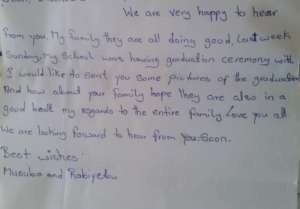 We are very happy to hear
from you. My family they are all doing good, Last week
Sunday, my School was having graduation ceremony with
I would like to sent you some pictures of the graduation
And how about your family hope they are also in a
good healt my regards to the entire family Love you all
We are loking forward to hear from you Soon.
Best wishes!
and